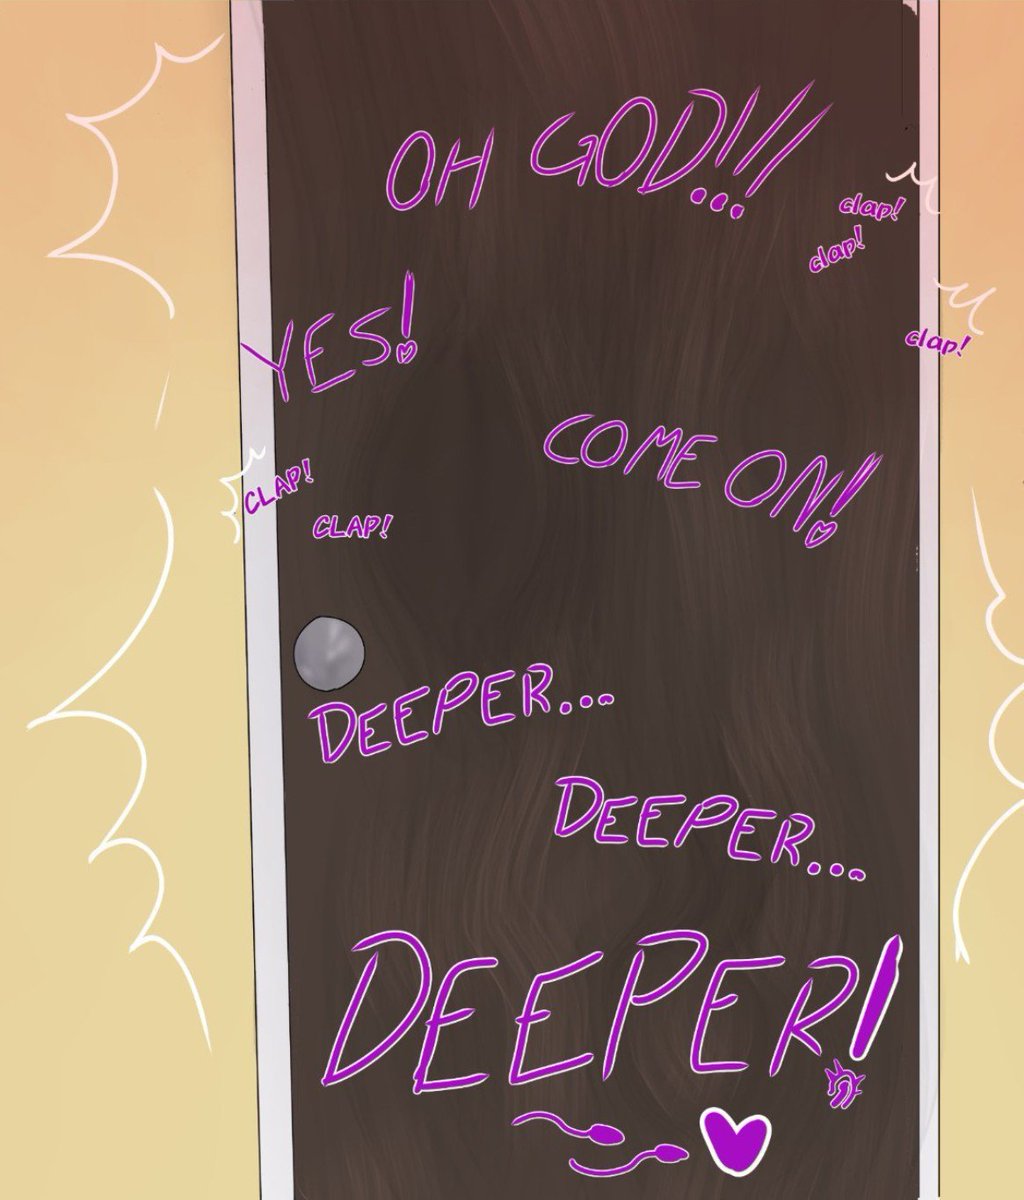 OH GOD!!!
clap!
clap!
YES!
clap!
COME ON!
CLAP!
CLAP!
DEEPER...
DEEPER...
DEEPER!